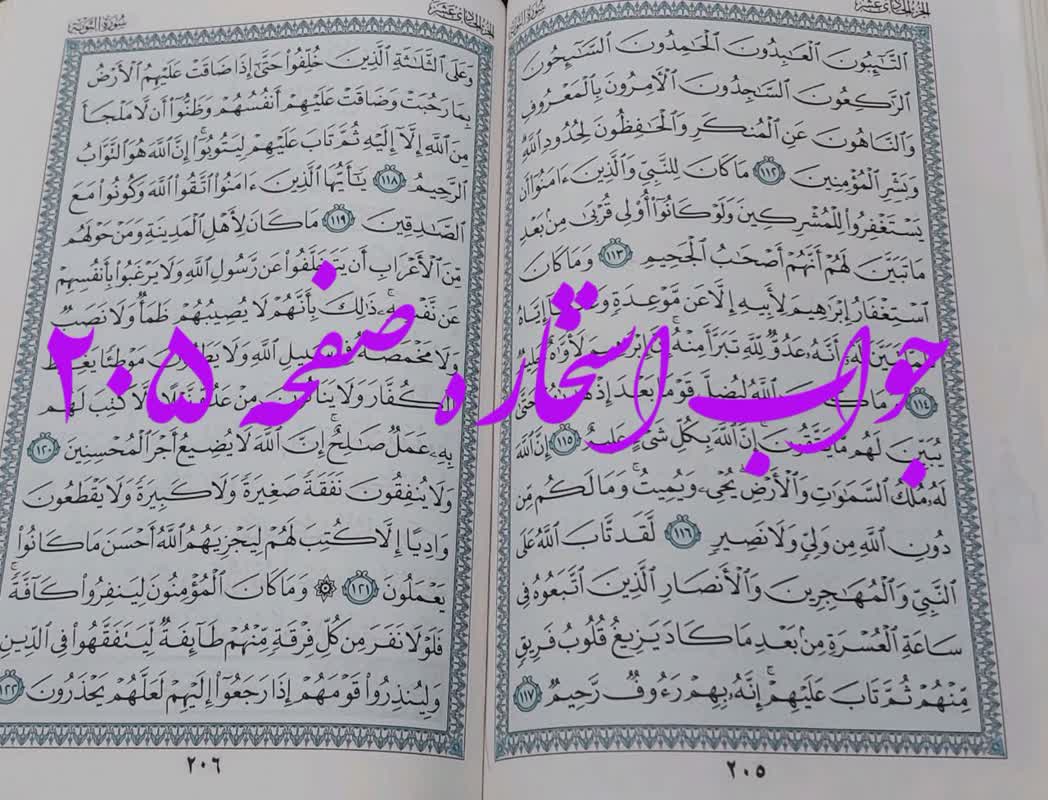 الجزء الحادي عشر
سورة التوبة
التَّٰٓئِبُونَ ٱلْعَٰبِدُونَ ٱلْحَٰمِدُونَ ٱلسَّٰٓئِحُونَ
ٱلرَّٰكِعُونَ ٱلسَّٰجِدُونَ ٱلْءَامِرُونَ بِٱلْمَعْرُوفِ
وَٱلنَّاهُونَ عَنِ ٱلْمُنكَرِ وَٱلْحَٰفِظُونَ لِحُدُودِ ٱللَّهِ
وَبَشِّرِ ٱلْمُؤْمِنِينَ ١١٢ مَا كَانَ لِلنَّبِيِّ وَٱلَّذِينَ ءَامَنُوٓا۟ أَن
يَسْتَغْفِرُوا۟ لِلْمُشْرِكِينَ وَلَوْ كَانُوٓا۟ أُو۟لِى قُرْبَىٰ مِنۢ بَعْدِ
مَا تَبَيَّنَ لَهُمْ أَنَّهُمْ أَصْحَٰبُ ٱلْجَحِيمِ ١١٣ وَمَا كَانَ
ٱسْتِغْفَارُ إِبْرَٰهِيمَ لِأَبِيهِ إِلَّا عَن مَّوْعِدَةٍ وَعَدَهَآ إِيَّاهُ
فَلَمَّا تَبَيَّنَ لَهُۥٓ أَنَّهُۥ عَدُوٌّ لِّلَّهِ تَبَرَّأَ مِنْهُ إِنَّ إِبْرَٰهِيمَ لَأَوَّٰهٌ حَلِيمٌ
١١٤ وَمَا كَانَ ٱللَّهُ لِيُضِلَّ قَوْمًۢا بَعْدَ إِذْ هَدَىٰهُمْ حَتَّىٰ
يُبَيِّنَ لَهُم مَّا يَتَّقُونَ إِنَّ ٱللَّهَ بِكُلِّ شَىْءٍ عَلِيمٌ ١١٥ إِنَّ ٱللَّهَ
لَهُۥ مُلْكُ ٱلسَّمَٰوَٰتِ وَٱلْأَرْضِ يُحْىِۦ وَيُمِيتُ وَمَا لَكُم مِّن
دُونِ ٱللَّهِ مِن وَلِىٍّ وَلَا نَصِيرٍ ١١٦ لَّقَد تَّابَ ٱللَّهُ عَلَى
ٱلنَّبِىِّ وَٱلْمُهَٰجِرِينَ وَٱلْأَنصَارِ ٱلَّذِينَ ٱتَّبَعُوهُ فِى
سَاعَةِ ٱلْعُسْرَةِ مِنۢ بَعْدِ مَا كَادَ يَزِيغُ قُلُوبُ فَرِيقٍ
مِّنْهُمْ ثُمَّ تَابَ عَلَيْهِمْ إِنَّهُۥ بِهِمْ رَءُوفٌ رَّحِيمٌ ١١٧
٢٠٥
الجزء الحادي عشر
سورة التوبة
وَعَلَى ٱلثَّلَٰثَةِ ٱلَّذِينَ خُلِّفُوا۟ حَتَّىٰٓ إِذَا ضَاقَتْ عَلَيْهِمُ ٱلْأَرْضُ
بِمَا رَحُبَتْ وَضَاقَتْ عَلَيْهِمْ أَنفُسُهُمْ وَظَنُّوٓا۟ أَن لَّا مَلْجَأَ
مِنَ ٱللَّهِ إِلَّآ إِلَيْهِ ثُمَّ تَابَ عَلَيْهِمْ لِيَتُوبُوٓا۟ إِنَّ ٱللَّهَ هُوَ ٱلتَّوَّابُ
ٱلرَّحِيمُ ١١٨ يَٰٓأَيُّهَا ٱلَّذِينَ ءَامَنُوا۟ ٱتَّقُوا۟ ٱللَّهَ وَكُونُوا۟ مَعَ
ٱلصَّٰدِقِينَ ١١٩ مَا كَانَ لِأَهْلِ ٱلْمَدِينَةِ وَمَنْ حَوْلَهُم
مِّنَ ٱلْأَعْرَابِ أَن يَتَخَلَّفُوا۟ عَن رَّسُولِ ٱللَّهِ وَلَا يَرْغَبُوا۟ بِأَنفُسِهِمْ
عَن نَّفْسِهِۦ ذَٰلِكَ بِأَنَّهُمْ لَا يُصِيبُهُمْ ظَمَأٌ وَلَا نَصَبٌ
وَلَا مَخْمَصَةٌ فِى سَبِيلِ ٱللَّهِ وَلَا يَطَـُٔونَ مَوْطِئًا يَغِيظُ
ٱلْكُفَّارَ وَلَا يَنَالُونَ مِنْ عَدُوٍّ نَّيْلًا إِلَّا كُتِبَ لَهُم
بِهِۦ عَمَلٌ صَٰلِحٌ إِنَّ ٱللَّهَ لَا يُضِيعُ أَجْرَ ٱلْمُحْسِنِينَ ١٢٠
وَلَا يُنفِقُونَ نَفَقَةً صَغِيرَةً وَلَا كَبِيرَةً وَلَا يَقْطَعُونَ
وَادِيًا إِلَّا كُتِبَ لَهُمْ لِيَجْزِيَهُمُ ٱللَّهُ أَحْسَنَ مَا كَانُوا۟
يَعْمَلُونَ ١٢١ ۞ وَمَا كَانَ ٱلْمُؤْمِنُونَ لِيَنفِرُوا۟ كَآفَّةً
فَلَوْلَا نَفَرَ مِن كُلِّ فِرْقَةٍ مِّنْهُمْ طَآئِفَةٌ لِّيَتَفَقَّهُوا۟ فِى ٱلدِّينِ
وَلِيُنذِرُوا۟ قَوْمَهُمْ إِذَا رَجَعُوٓا۟ إِلَيْهِمْ لَعَلَّهُمْ يَحْذَرُونَ ١٢٢
٢٠٦
جواب استخاره صفحه ۲۰۵